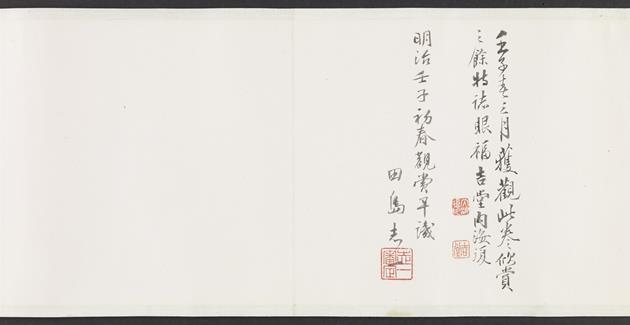 壬子春三月獲觀此卷欣賞
之餘特誌眼福吉堂内海復
明治壬子初春觀賞識
田島志一